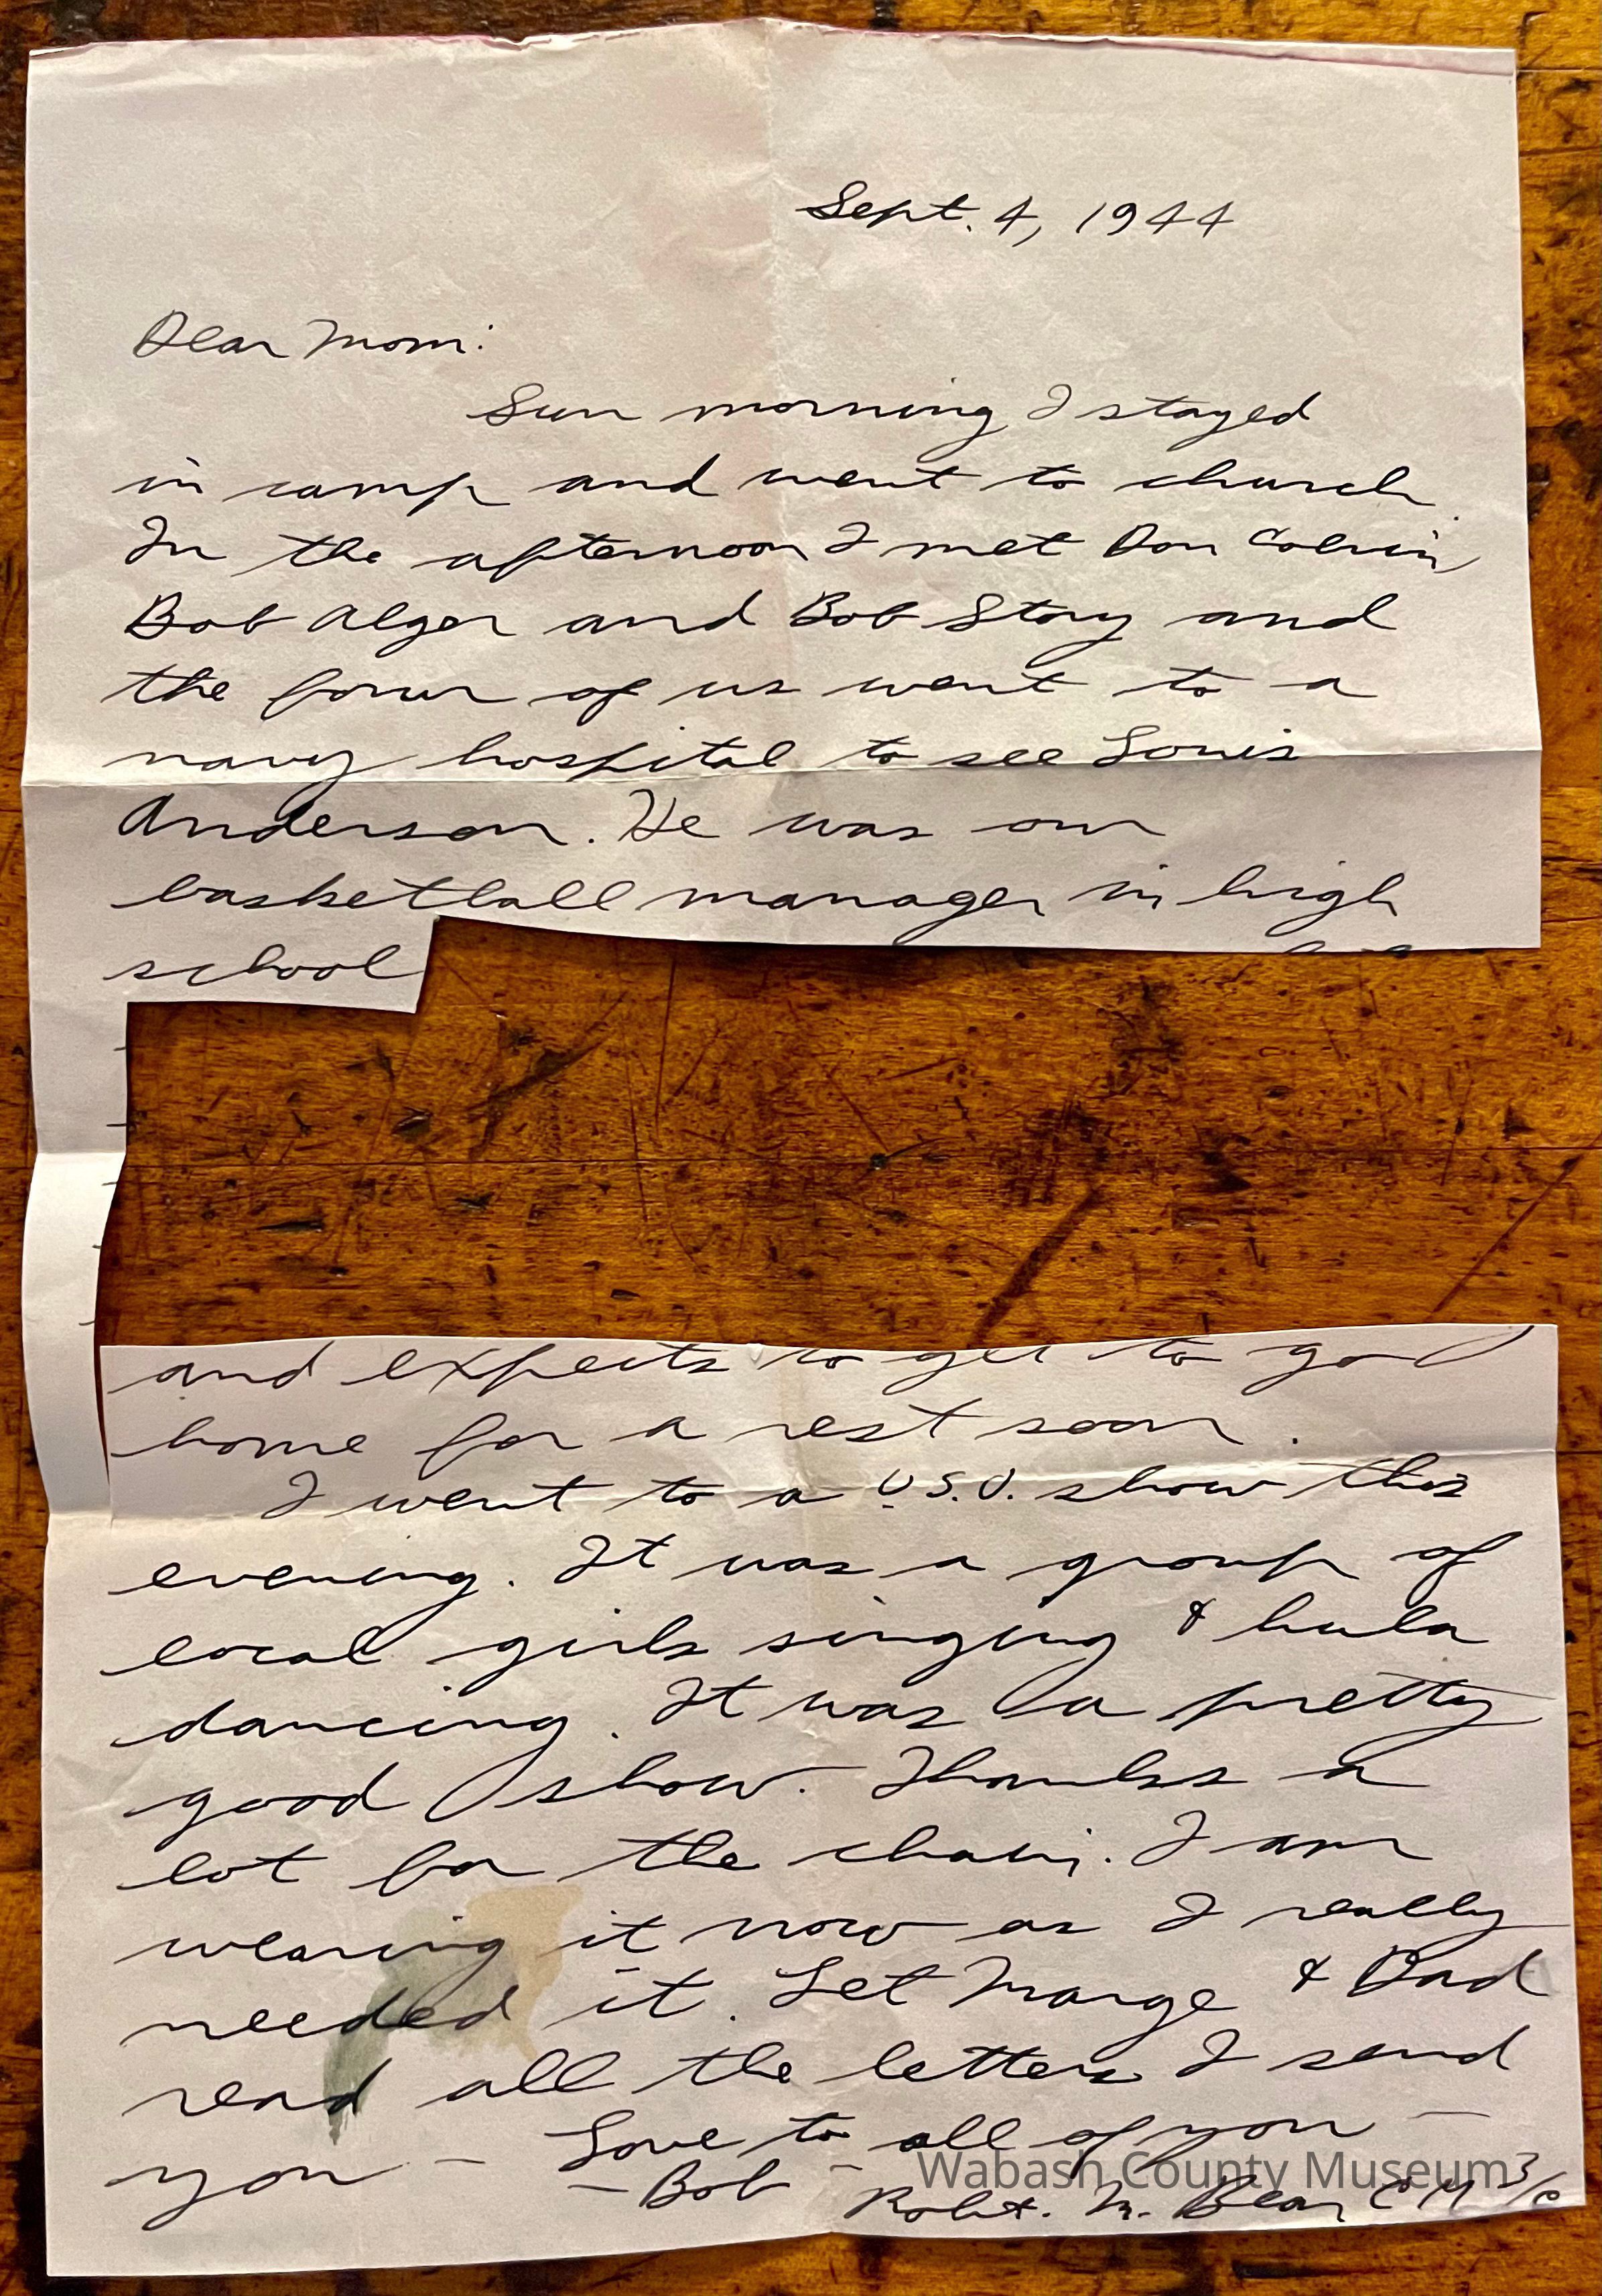 Sept. 4, 1944
Dear Mom:
Sun morning I stayed
in camp and went to church.
In the afternoon I met Don Colvin,
Bob Alger and Bob Story and
the four of us went to a
navy hospital to see Louis
Anderson. He was our
basketball manager in high
school
and expects to get to go
home for a rest soon.
I went to a U.S.O. show this
evening. It was a group of
local girls singing & hula
dancing. It was a pretty
good show. Thanks a
lot for the chain. I am
wearing it now as I really
needed it. Let Marge & Dad
read all the letters I send
you - Love to all of you -
- Bob - Robt. M. Bear CM 3/c
Wabash County Museum